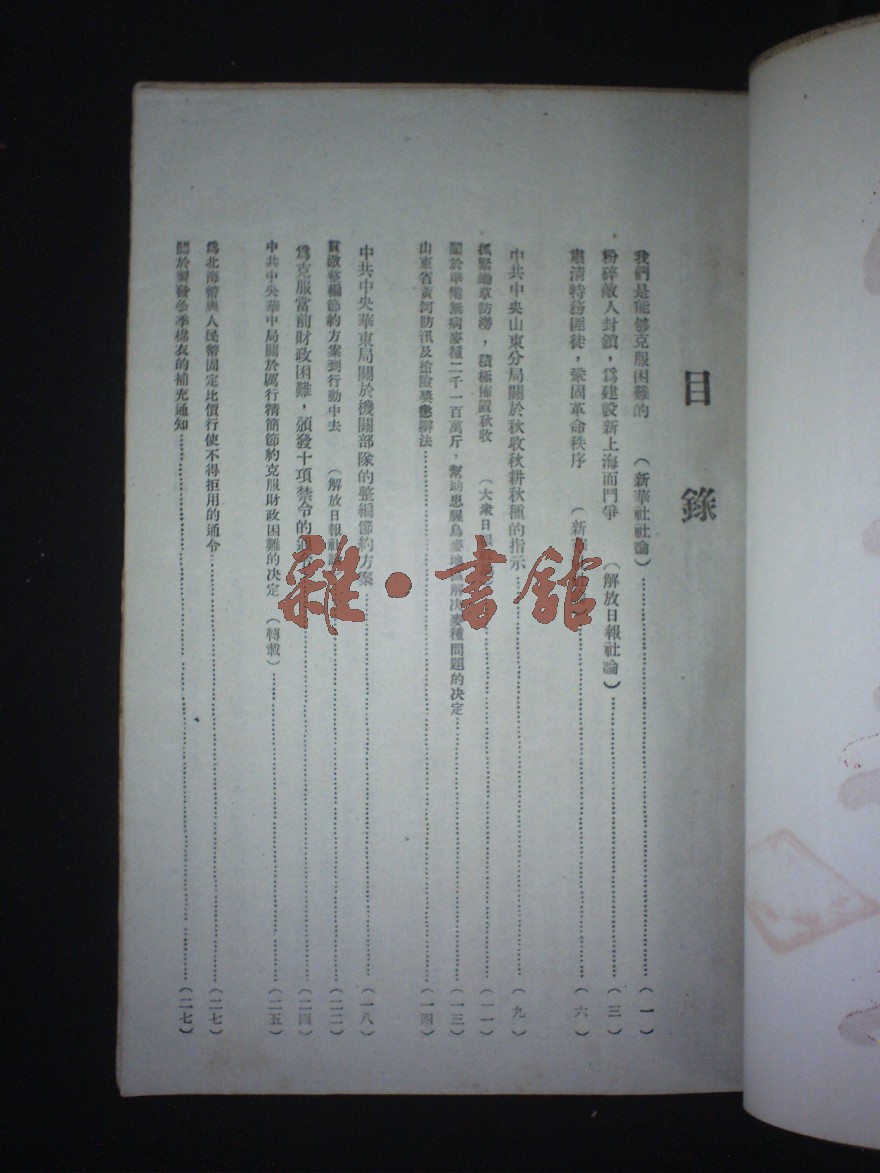 目錄
我們是能够克服困難的（新華社社論）（一）
粉碎敵人封鎖，爲建設新上海而鬥爭（解放日報社論）（三）
肅清特務匪徒，鞏固革命秩序（新（六）
中共中央山東分局關於秋收秋耕秋種的指示（九）
抓緊鋤草防澇，積極佈置秋收（大衆日報（一一）
關於準備無病麥種二千一百萬斤，幫助患腥烏麥地區解决麥種問題的决定（一三）
山東省黃河防汛及搶險獎懲辦法（一四）
中共中央華東局關於機關部隊的整編節約方案（一八）
貫澈整編節約方案到行動中去（解放日報社（二二）
爲克服當前財政困難，頒發十項禁令的（二四）
中共中央華中局關於厲行精簡節約克服財政困難的决定（轉載）（二五）
爲北海幣與人民幣固定比價行使不得拒用的通令（二七）
關於製發今季棉衣的補充通知（二七）
雜·書館